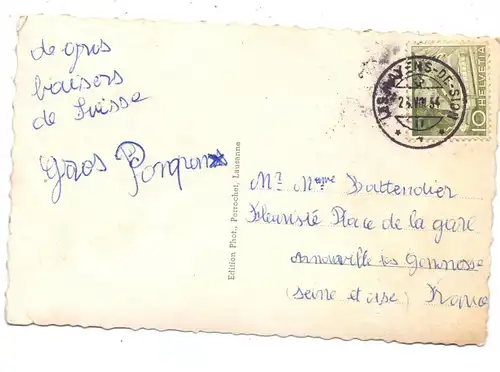 de gros
baisers
de Suisse
Gros
Edition Phot., Perrochet, Lausanne
LES MAYENS-DE-SION
HELVETIA
10
Mr Mme Battendier
Fleuriste Place de la gare
les Gonnesse
(Seine et Oise) France